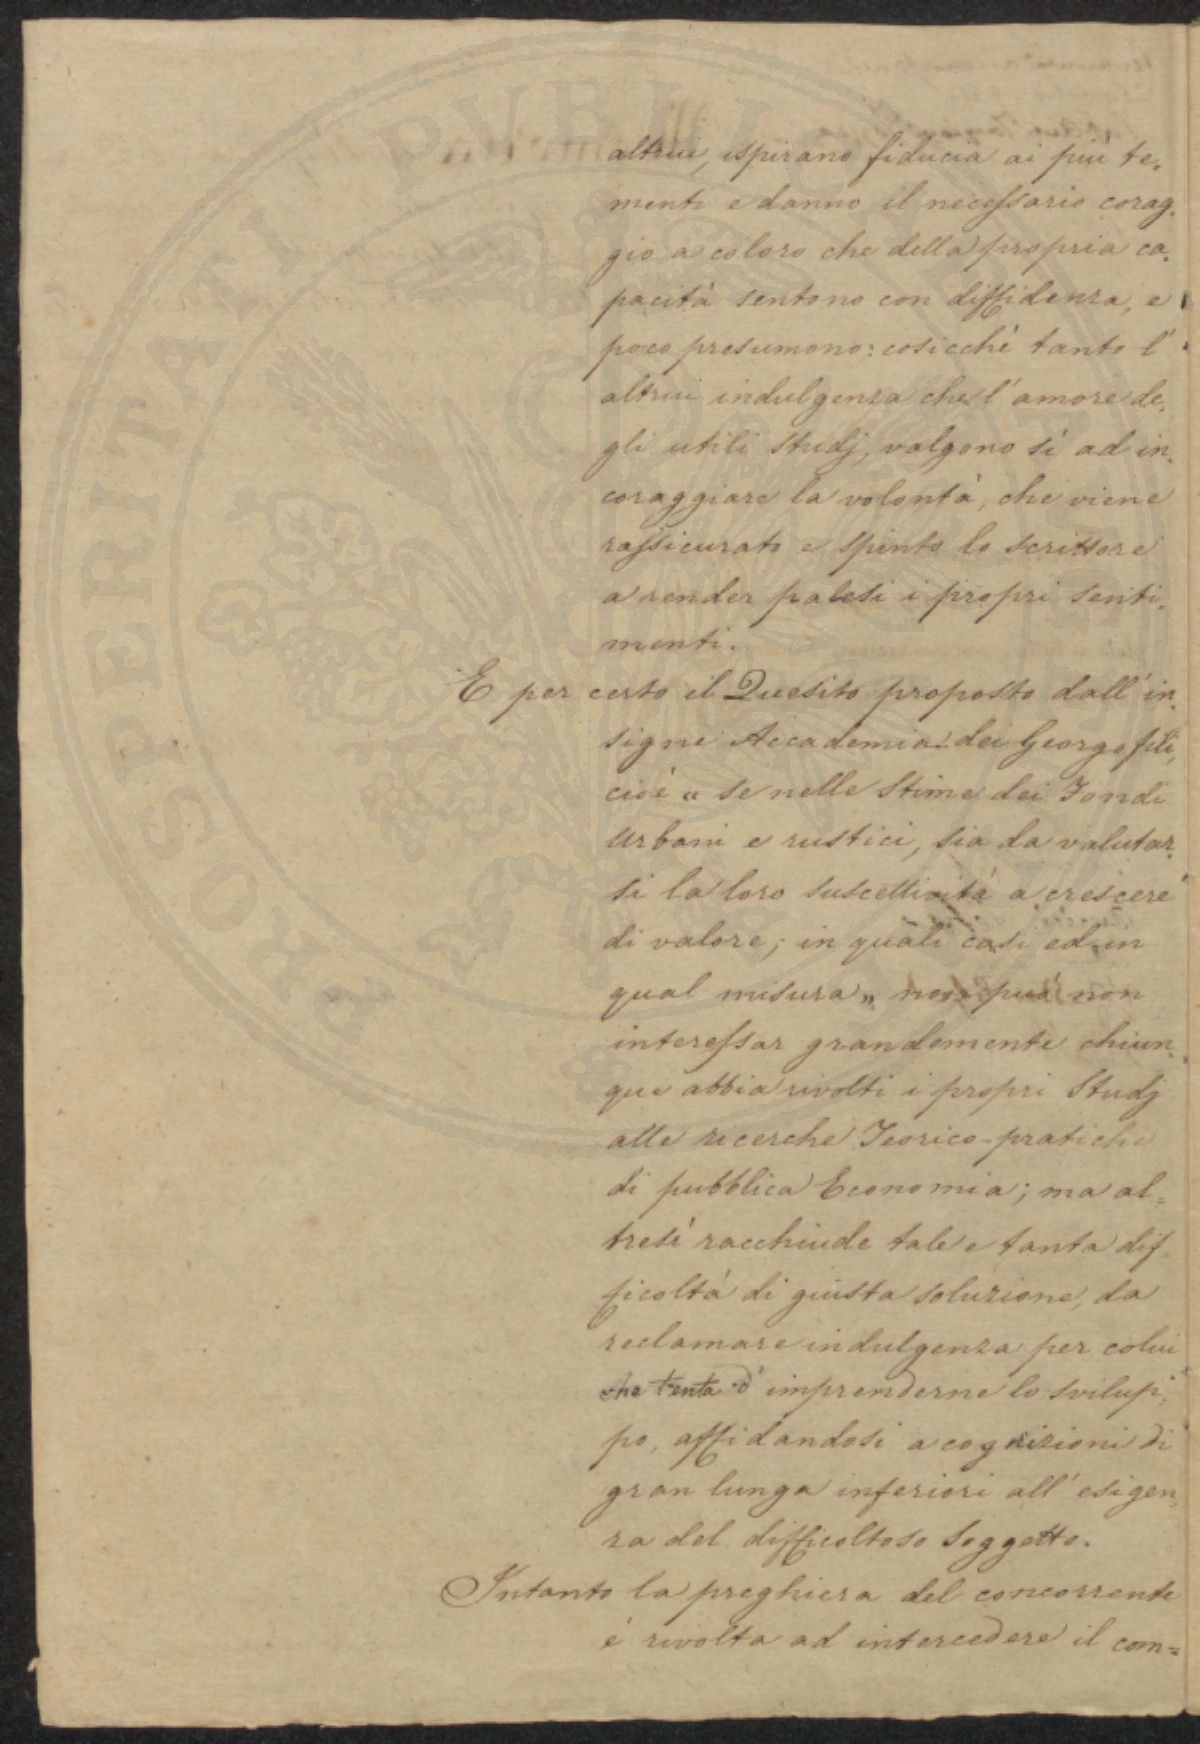 PROSPERITATI PUBLICAE
altrui, ispirano fiducia ai più te-
menti e danno il necessario corag-
gio a coloro che della propria ca-
pacità sentono con diffidenza, e
poco presumono: cosicchè tanto l'
altrui indulgenza che l'amore de-
gli utili Studj, valgono sì ad in-
coraggiare la volontà, che viene
rassicurato e spinto lo scrittore
a render palesi i propri senti-
menti.
E per certo il Quesito proposto dall'in-
signe Accademia dei Georgofili,
cioè „ se nelle Stime dei Fondi
Urbani e rustici, sia da valutar-
si la loro suscettività a crescere
di valore; in quali casi ed in
qual misura „ non può non
interessar grandemente chiun-
que abbia rivolti i propri Studj
alle ricerche Teorico-pratiche
di pubblica Economia; ma al=
tresì racchiude tale e tanta dif-
ficoltà di giusta soluzione, da
reclamare indulgenza per colui
che tenta d'imprenderne lo svilup-
po, affidandosi a cognizioni di
gran lunga inferiori all'esigen-
za del difficoltoso Soggetto.
Intanto la preghiera del concorrente
è rivolta ad intercedere il com=